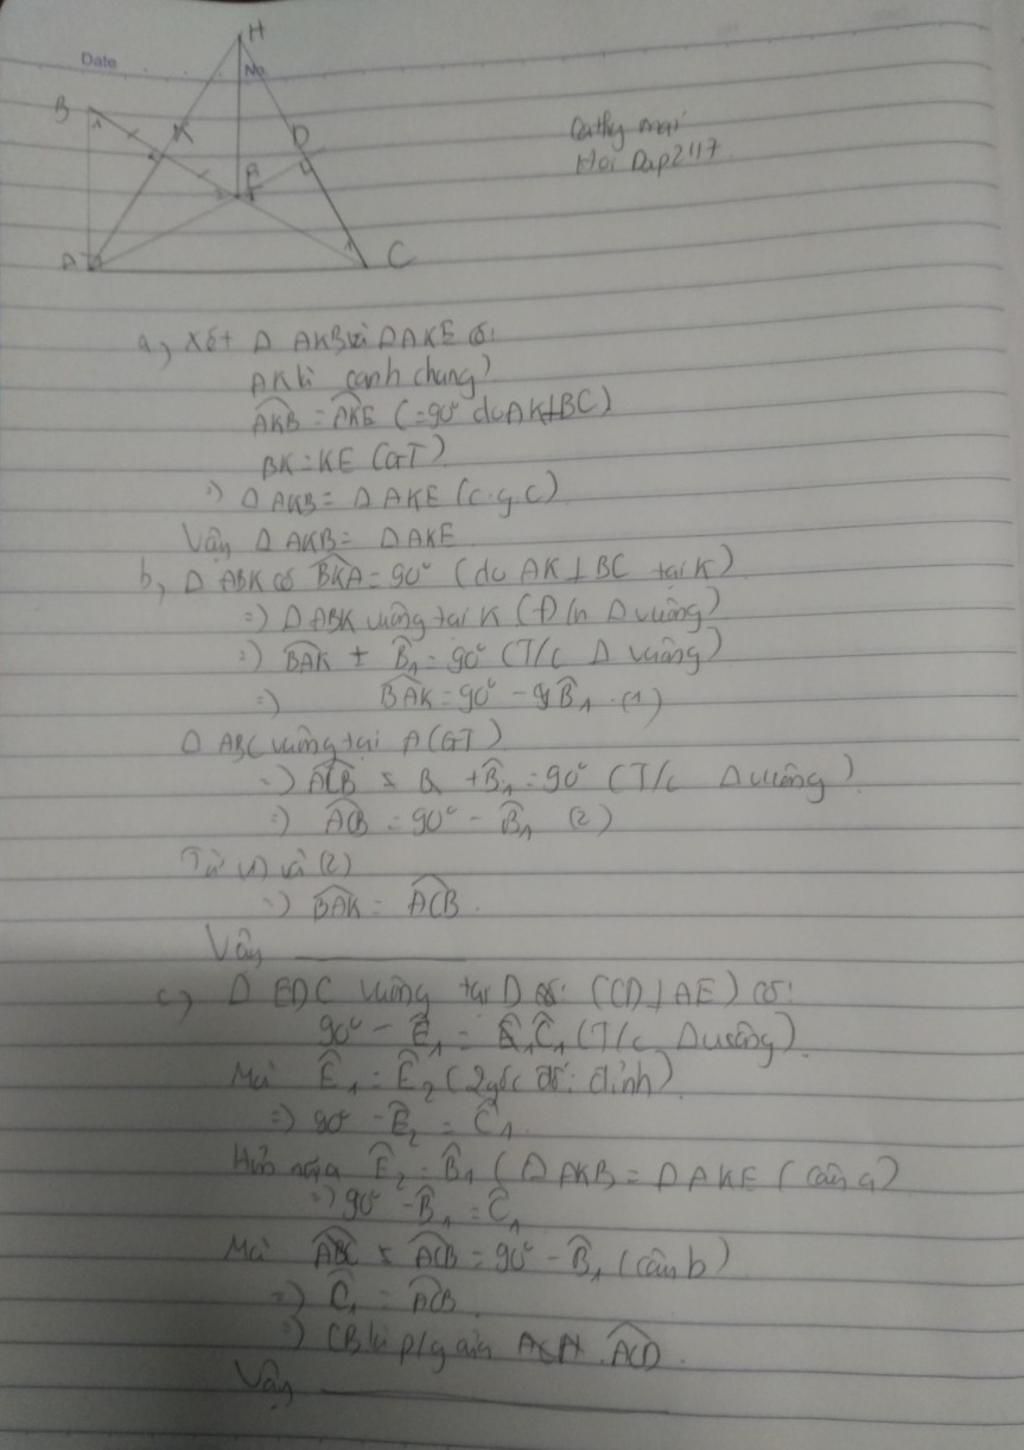 H
Date
No
B
K
D
E
A
C
Cathy mai
Hoi Dap247
a, Xét Δ AKB và ΔAKE có:
AK là cạnh chung
AKB = AKE (=90° do AK⊥BC)
BK=KE (GT)
=) Δ AKB = Δ AKE (c.g.c)
Vậy Δ AKB = ΔAKE
b, Δ ABK có BKA = 90° (do AK⊥BC tại K)
=) ΔABK vuông tại K (Đ/n Δ vuông)
=) BAK + B1 = 90° (T/c Δ vuông)
=) BAK = 90° - B1 (1)
Δ ABC vuông tại A (GT)
=) ACB + B1 = 90° (T/c Δ vuông)
=) ACB = 90° - B1 (2)
Từ (1) và (2)
=) BAK = ACB.
Vậy
c, Δ EDC vuông tại D (CD⊥AE) có:
90° - E1 = C1 (T/c Δ vuông)
Mà E1 = E2 (2 góc đối đỉnh)
=) 90° - E2 = C1
Hơn nữa E2 = B1 (ΔAKB = ΔAKE (câu a)
=) 90° - B1 = C1
Mà ACB = 90° - B1 (câu b)
=) C1 = ACB
=) CB là p/g của ACD.
Vậy